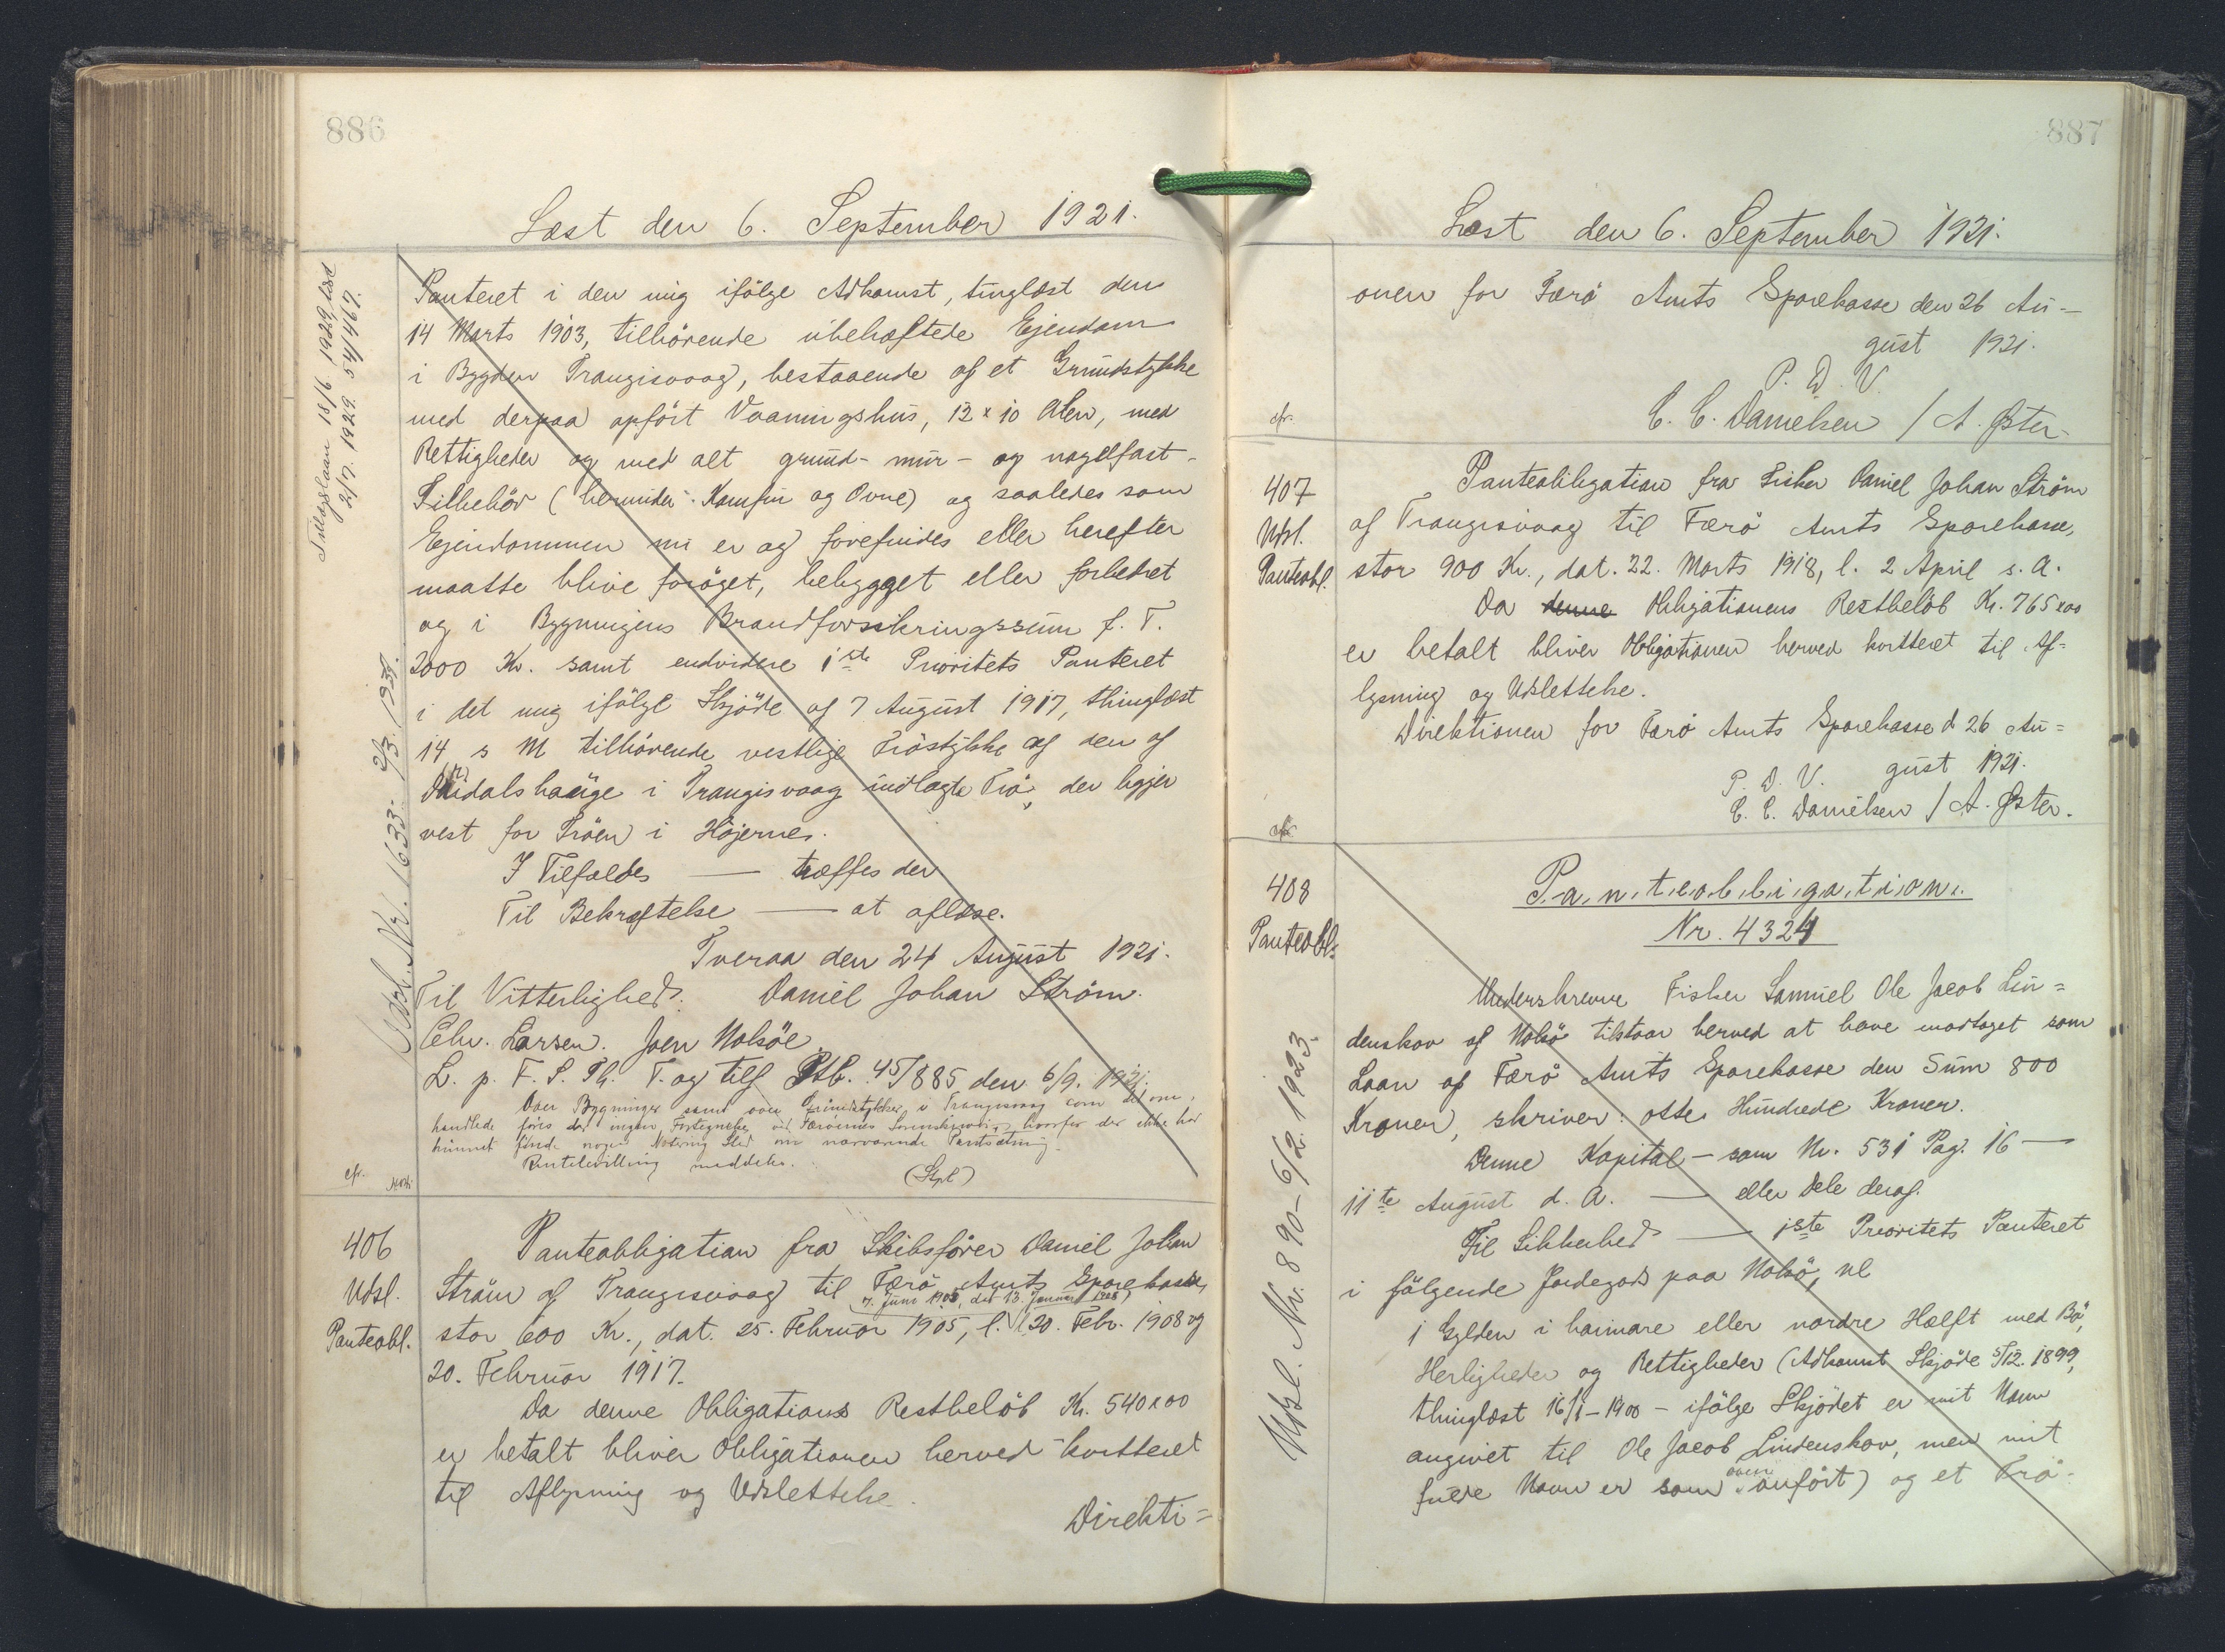 886
Læst den 6. September 1921.
Tillægslaan 18/6 1929 læst
2/7. 1929. 54/467.
Udsl. Nr. 1633 - 2/3. 1931.
Panteret i den mig ifølge Adkomst, tinglæst den
14 Marts 1903, tilhörende übehæftede Ejendom
i Bygden Trangisvaag, bestaaende af et Grundstykke
med derpaa opfört Vaaningshus, 12 x 10 Alen, med
Rettigheder og med alt grund- mur- og nagelfast-
Tilbehör (herunder Komfur og Ovne) og saaledes som
Ejendommen nu er og forefindes eller herefter
maatte blive foröget, bebygget eller forbedret
og i Bygningens Brandforsikringssum f. T.
2000 Kr. samt endvidere 1ste Prioritets Panteret
i det mig ifölge Skjöde af 7 August 1917, thinglæst
14 s M tilhörende vestlige Tröstykke af den af
hauge i Trangisvaag indlagte Trö, der ligger
vest for Tröen i Höjernes.
I Tilfældes — træffes der
Til Bekræftelse — at aflæse.
Tveraa den 24 August 1921.
Til Vitterlighed: Daniel Johan Ström.
Chr. Larsen. Joen Nolsöe.
L. p. F. S. Th. T. og tilf Ptb. 45/885 den 6/9. 1921.
Over Bygninger samt over Grundstykker i Trangisvaag som det om-
handlede föres der ingen Fortegnelse ved Færöernes Sorenskriveri, hvorfor der ikke har
kunnet finde nogen Notering Sted om nærværende Pantsætning.
Rentebevilling meddeles. (Stpl)
cfr.
406
Udsl.
Panteobl.
Panteobligation fra Skibsförer Daniel Johan
Ström af Trangisvaag til Færö Amts Sparekasse,
7. Juni 1905, dat 13. Januar 1908,
stor 600 Kr., dat. 25. Februar 1905, l. 20. Febr. 1908 og
20. Februar 1917.
Da denne Obligations Restbelöb Kr. 540x00
er betalt bliver Obligationen herved kvitteret
til Aflysning og Udslettelse.
Direkti=
887
Læst den 6. September 1921.
onen for Færö Amts Sparekasse den 26 Au-
gust 1921.
P. D. V.
C. C. Danielsen / A. Øster.
cfr.
407
Udsl.
Panteobl.
Panteobligation fra Fisker Daniel Johan Ström
af Trangisvaag til Færö Amts Sparekasse,
stor 900 Kr., dat. 22. Marts 1918, l. 2 April s. A.
Da denne Obligationens Restbelöb Kr. 765x00
er betalt bliver Obligationen herved kvitteret til Af=
lysning og Udslettelse.
Direktionen for Færö Amts Sparekasse d 26 Au=
gust 1921.
P. D. V.
C. C. Danielsen / A. Øster.
cfr.
408
Panteobl.
Udsl. Nr. 890 - 6/2. 1923.
Panteobligation.
Nr. 4324
Underskrevne Fisker Samuel Ole Jacob Lin=
denskov af Nolsö tilstaar herved at have modtaget som
Laan af Færö Amts Sparekasse den Sum 800
Kroner, skriver: otte Hundrede Kroner.
Denne Kapital — som Nr. 531 Pag. 16 —
11te August d. A. — eller Dele deraf.
Til Sikkerhed — 1ste Prioritets Panteret
i fölgende Jordegods paa Nolsö, nl
1 Gylden i haimare eller nordre Hælft med Bö,
Herligheder og Rettigheder (Adkomst Skjöde 5/12. 1899,
thinglæst 16/1 - 1900 - ifölge Skjödet er mit Navn
angivet til Ole Jacob Lindenskov, men mit
fulde Navn er som oven anfört) og et Trö-